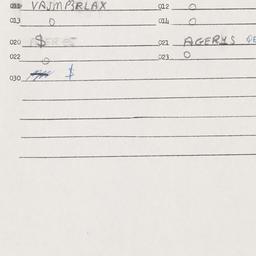 VAJMPBRLAX 012 O
013 O 014 O
020 $ 021 AGERYS
022 O 023 O
030 $